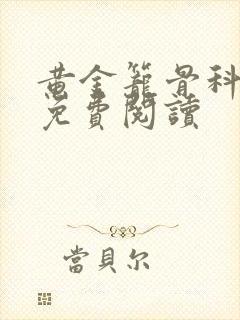 黃金籠骨科
免費閱讀
當貝尔